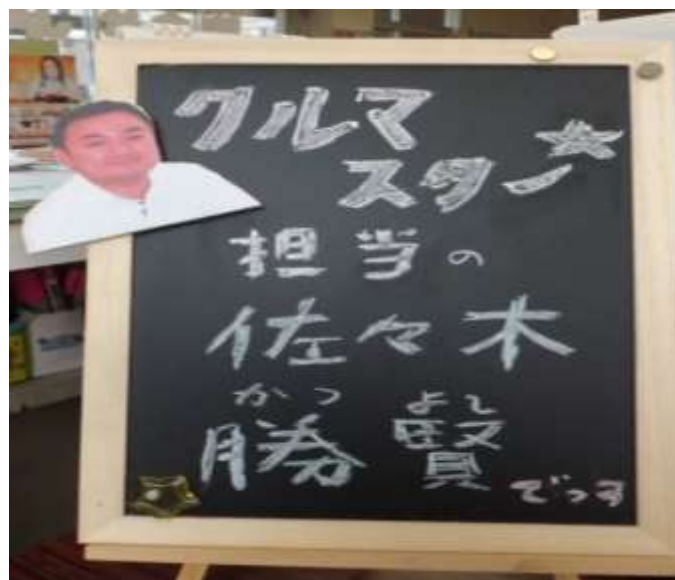 クルマ
スター
担当の
佐々木
かつ よし
勝 賢
でっす